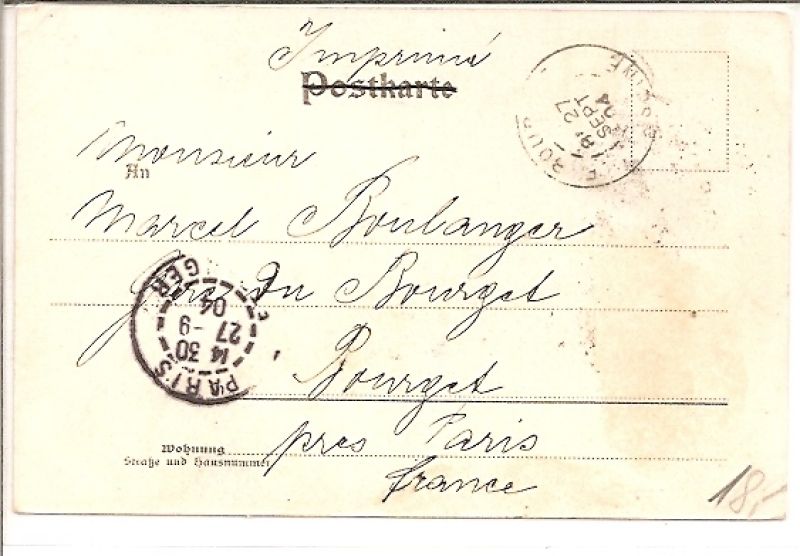 Imprimé
Postkarte
Monsieur
An
Marcel Boulanger
Gare Du Bourget
Bourget
près Paris
france
Wohnung
Straße und Hausnummer
27
SEPT
04
PARIS
14 30
27 -9
04
18,-